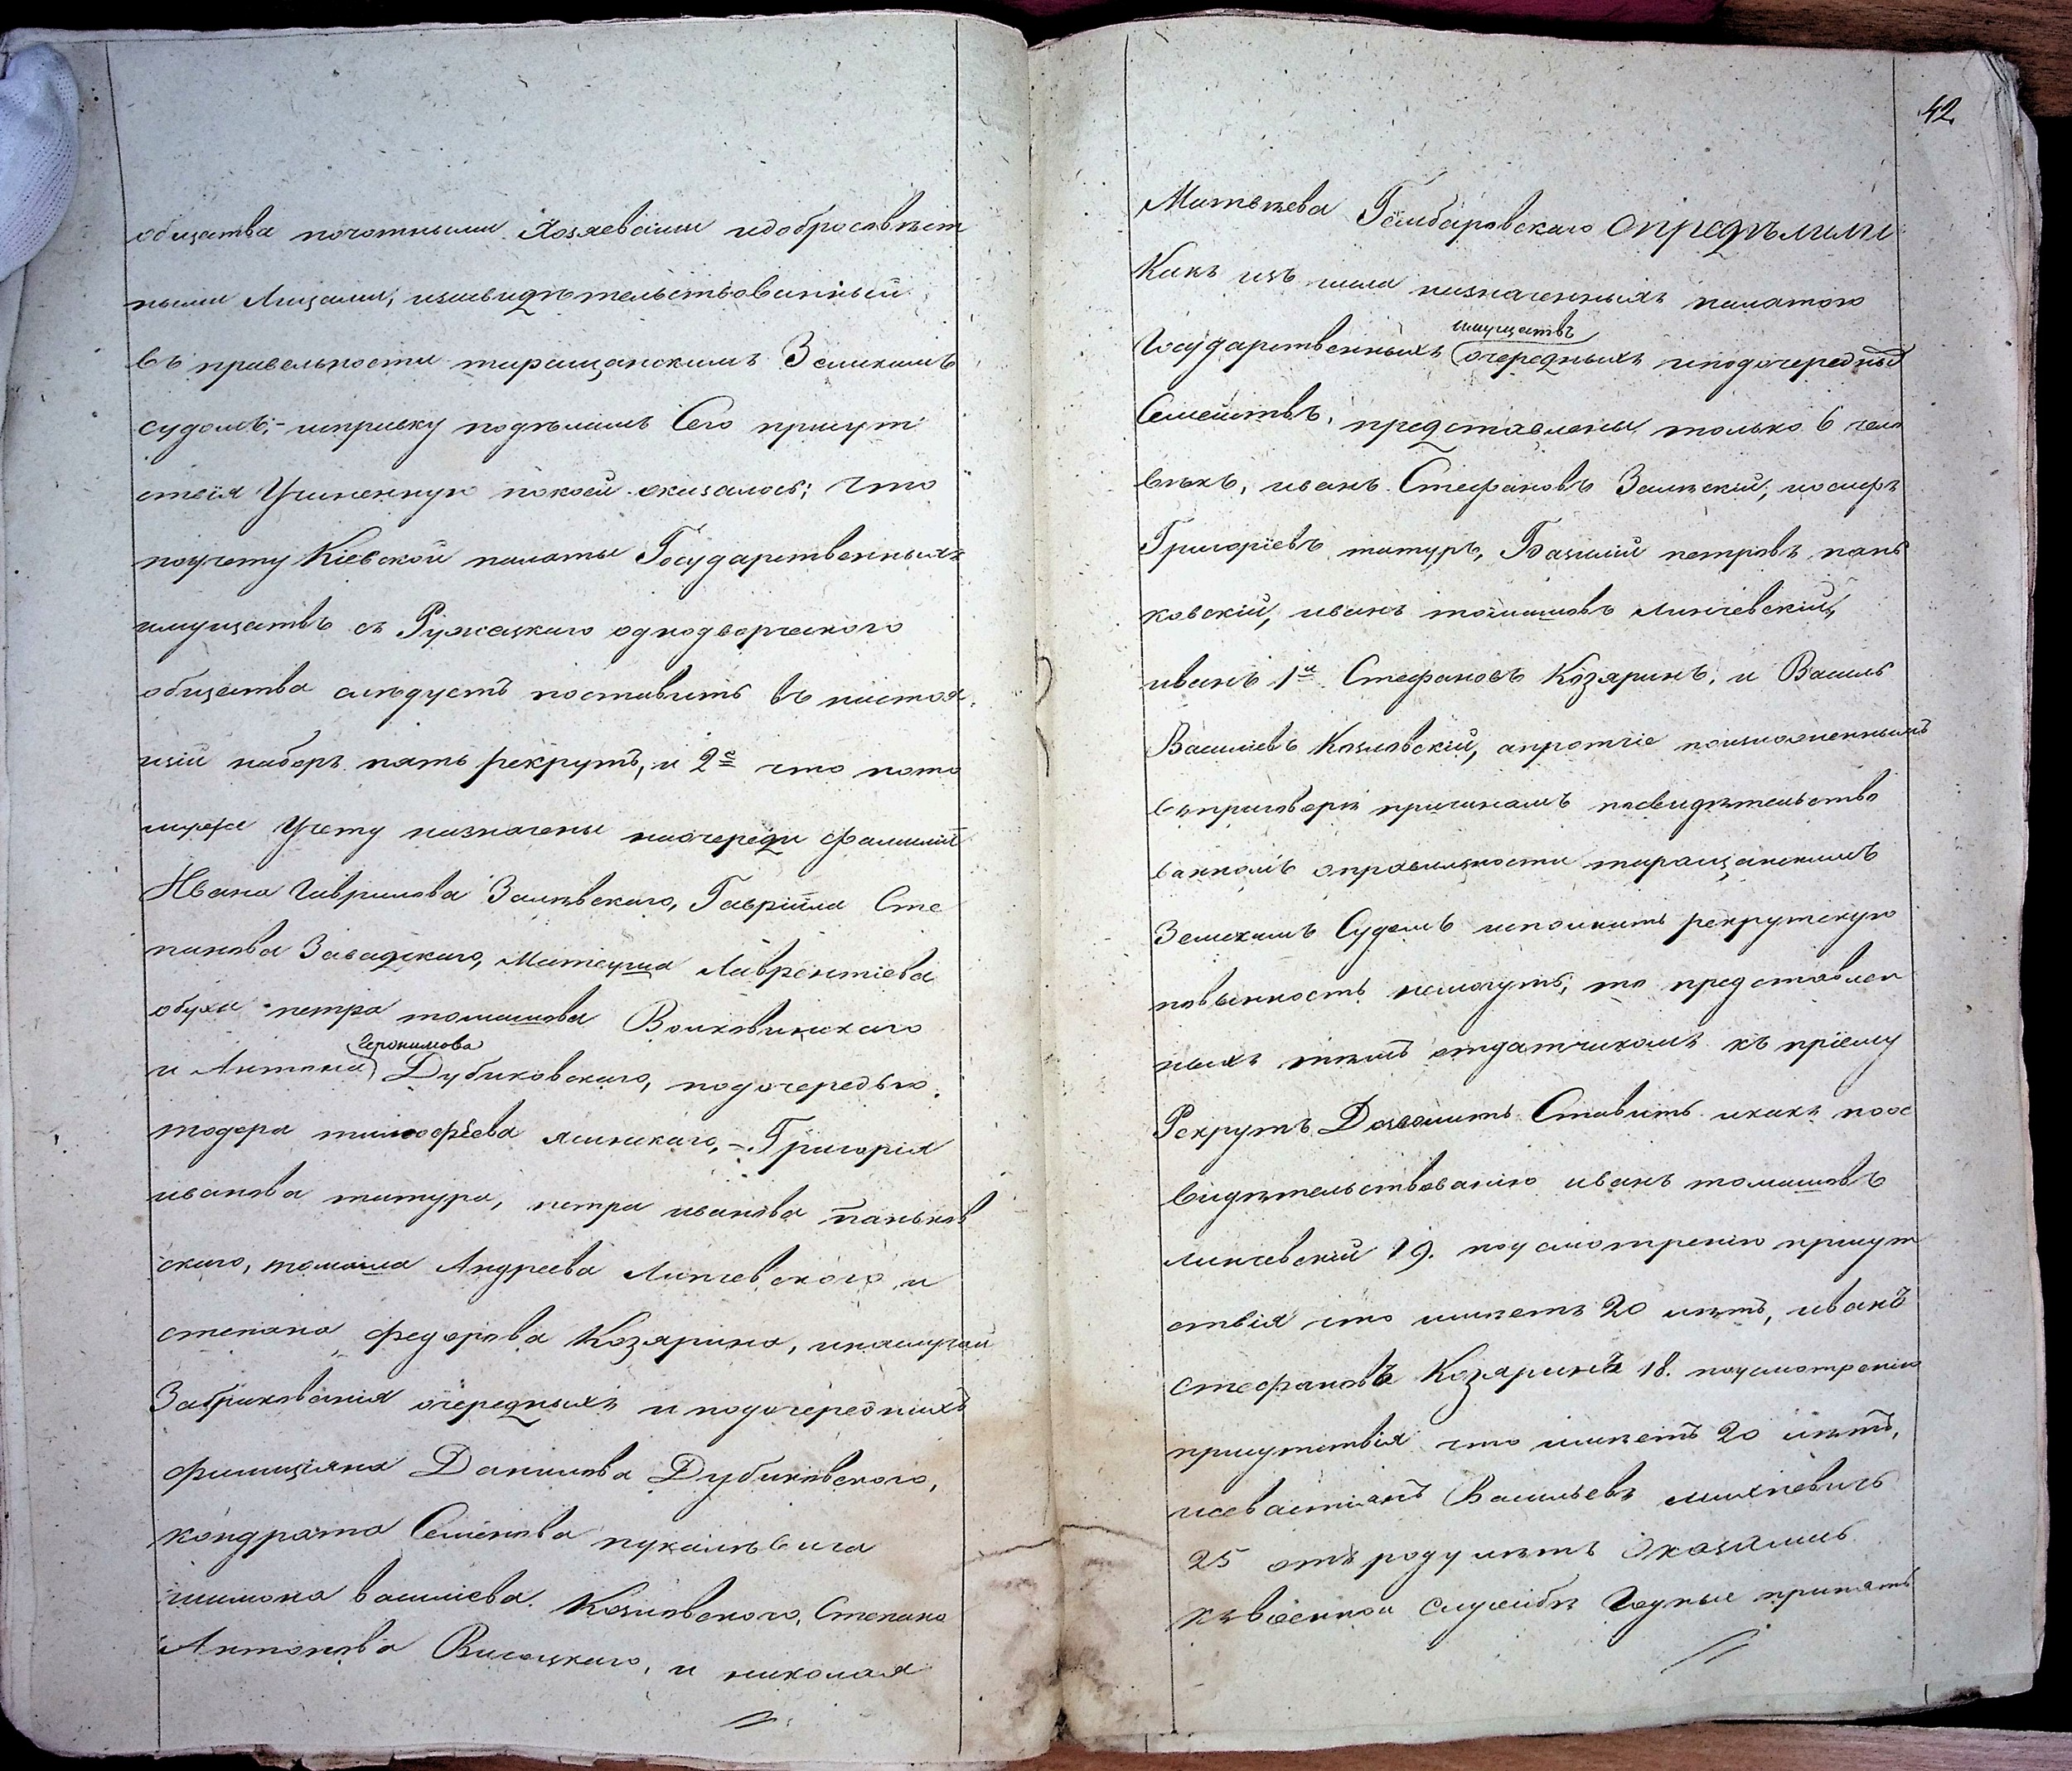 общества почотными Хозяевами идобросовѣст
ными Лицами, изасвидѣтельствованный
въ правельности таращанскимъ Земскимъ
судомъ;- исправку подѣламъ Сего присут
ствія Учиненную покоей оказалось; Что
поучету Кіевской палаты Государственныхъ
имуществъ съ Ружецкаго однодворческого
общества слѣдуетъ поставить въ настоя
щій наборъ пять рекрутъ, и 2е что пото
мужъ Учету назначены наочереди фамиліи
Ивана Гаврилова Залѣвскаго, Гавріила Сте
панова Завадскаго, Матеуша Лаврентіева
обухи петра томашова Волковинскаго
Геронимова
и Антона Дубиковскаго, подочередью
тодора тимофѣева ясинскаго,- Григорія
иванова татура, петра иванова паньков
скаго, томаша Андреева Линчевского и
степана федорова Козярина, инаслучай
Забракованія очередныхъ и подочередныхъ
филиціяна Данилова Дубиковского,
кондрата Семенова
шимона василіева Козловского, Степана
Антонова Висоцкаго, и николая
42
Матвѣева Гембаровскаго Опредѣлили
Какъ изъ числа назначенныхъ палатою
имуществъ
Государственныхъ очередныхъ иподочередныхъ
Семействъ, представлены только 6 чело
вѣкъ, иванъ Стефановъ Залѣскій, иосифъ
Григоріевъ татуръ, Базилій петровъ пань
ковскій, иванъ томашовъ Линчевскій,
иванъ 1й Стефановъ Козяринъ, и Василь
Василіевъ Козловскій, апротчіе поизложеннымъ
въприговорѣ причинамъ позвидѣтельство
ванномъ оправильности таращанскимъ
Земскимъ Судомъ исполнить рекрутскую
повинность немогутъ, то представлен
ныхъ тѣмъ отдатчикомъ къ пріему
Рекрутъ Дозволить Ставить икакъ поос
видѣтельствованію иванъ томашовъ
линчевскій 19. поусмотренію присут
ствія что имѣетъ 20 лѣтъ, иванъ
стефановъ Козяринъ 18. поусмотренію
присутствія что имѣетъ 20 лѣтъ,
исевастіянъ Васильевъ михневичъ
25 отъ роду лѣтъ Оказались
къ военной службѣ Годные принять